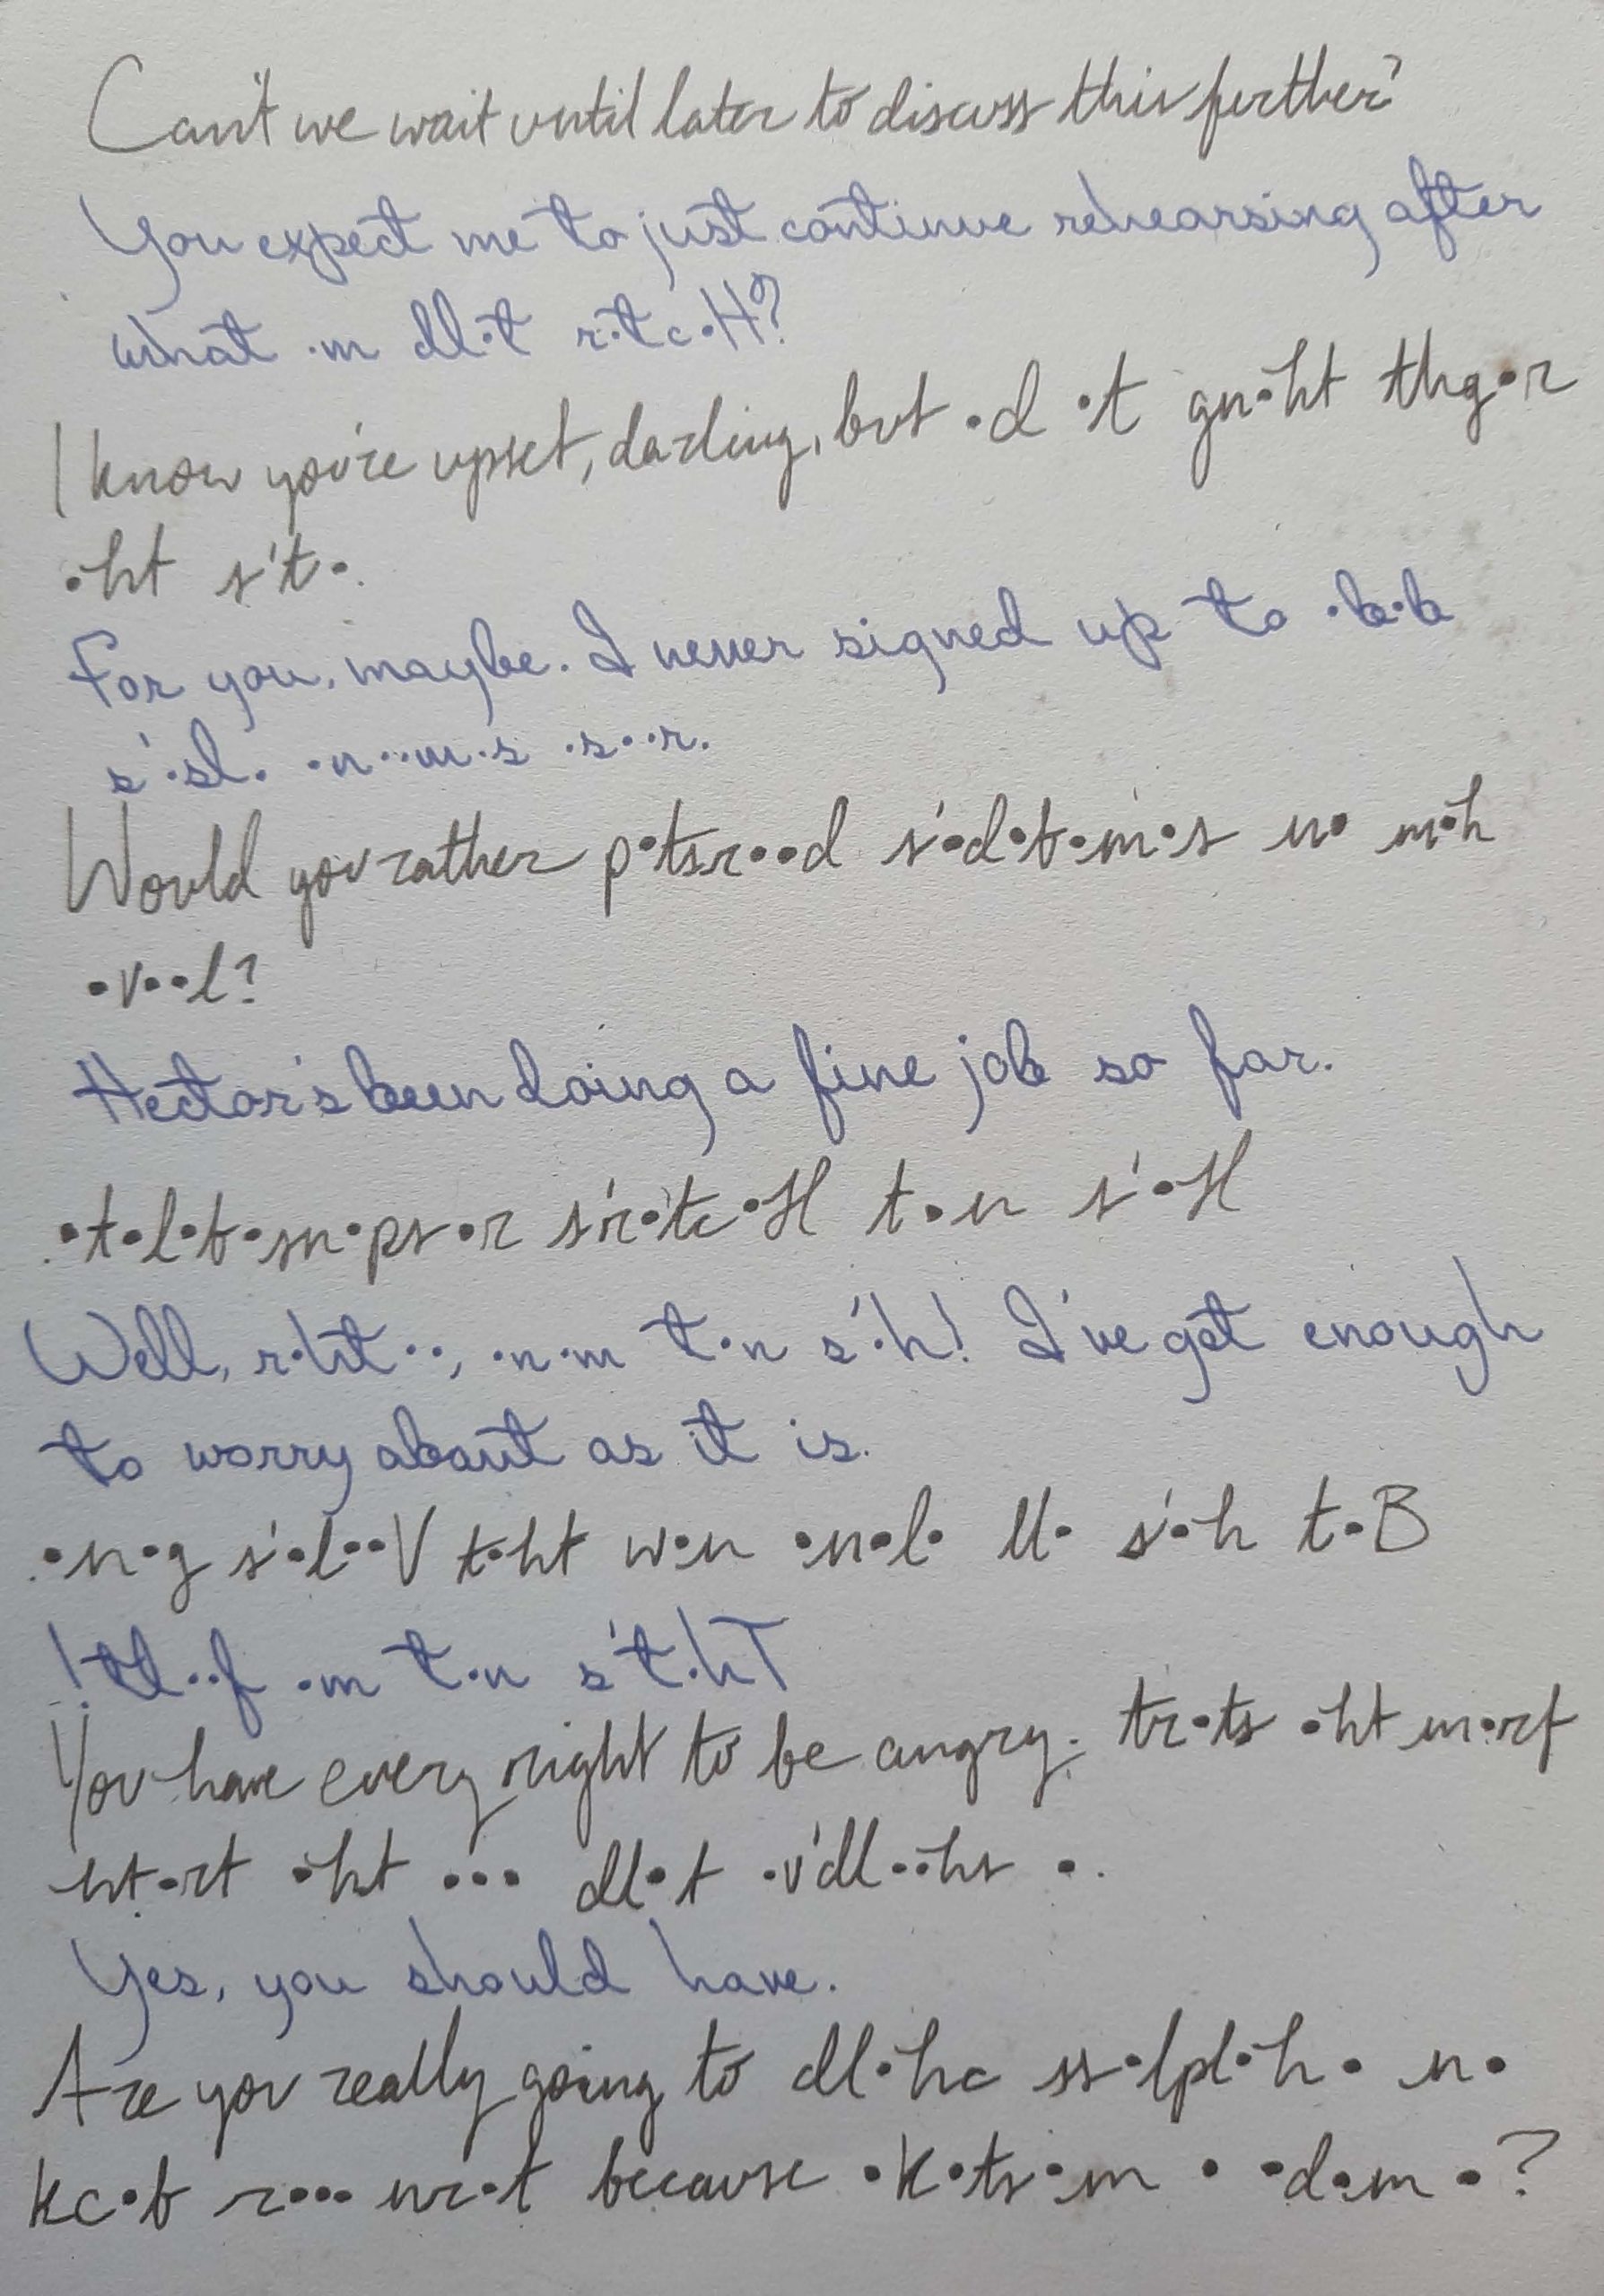 Can't we wait until later to discuss this further?
You expect me to just continue rehearsing after
what •m dl•t r•tc•H?
I know you're upset, darling, but •d •t gn•ht thg•r
•ht s't•.
For you, maybe. I never signed up to •b•b
s'•sl• •n••m•s •s••r.
Would you rather p•tsr••d s'•d•b•m•s n• m•h
•v••l?
Hector's been doing a fine job so far.
.•t•l•b•sn•ps•r s'r•tc•H t•n s'•H
Well, r•ht••, •n•m t•n s'•h! I've got enough
to worry about as it is.
.•n•g s'•l••V t•ht w•n •n•l• ll• s'•h t•B
!tl••f •m t•n s't•hT
You have every right to be angry. tr•ts •ht m•rf
ht•rt •ht ••• dl•t •v'dl••hs •.
Yes, you should have.
Are you really going to dl•hc ss•lpl•h • n•
kc•b r••• nr•t because •k•ts•m • •d•m •?